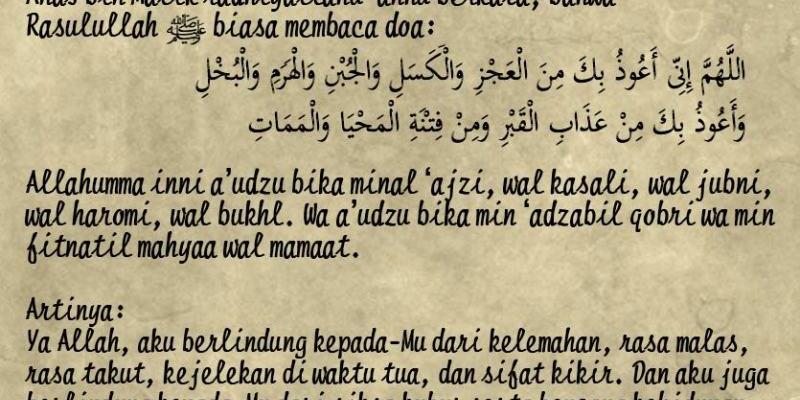 Rasulullah ﷺ biasa membaca doa:
اللَّهُمَّ إِنِّي أَعُوذُ بِكَ مِنَ الْعَجْزِ وَالْكَسَلِ وَالْجُبْنِ وَالْهَرَمِ وَالْبُخْلِ
وَأَعُوذُ بِكَ مِنْ عَذَابِ الْقَبْرِ وَمِنْ فِتْنَةِ الْمَحْيَا وَالْمَمَاتِ
Allahumma inni a’udzu bika minal ‘ajzi, wal kasali, wal jubni,
wal haromi, wal bukhl. Wa a’udzu bika min ‘adzabil qobri wa min
fitnatil mahyaa wal mamaat.
Artinya:
Ya Allah, aku berlindung kepada-Mu dari kelemahan, rasa malas,
rasa takut, kejelekan di waktu tua, dan sifat kikir. Dan aku juga